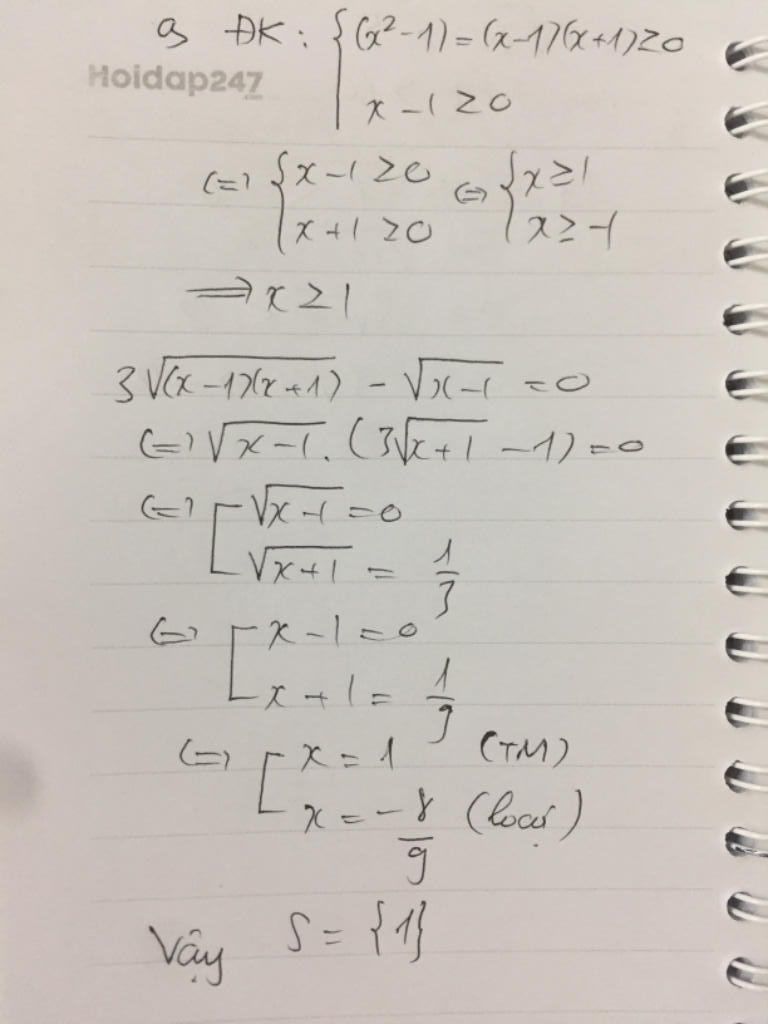 a, ĐK: { (x²-1) = (x-1)(x+1) ≥ 0
Hoidap247
x - 1 ≥ 0
(=) { x - 1 ≥ 0 (=) { x ≥ 1
x + 1 ≥ 0 x ≥ -1
⟹ x ≥ 1
3√(x-1)(x+1) - √x-1 = 0
(=) √x-1 . (3√x+1 - 1) = 0
(=) [ √x-1 = 0
√x+1 = 1/3
(=) [ x - 1 = 0
x + 1 = 1/9
(=) [ x = 1 (TM)
x = -8/9 (loại)
Vậy S = {1}